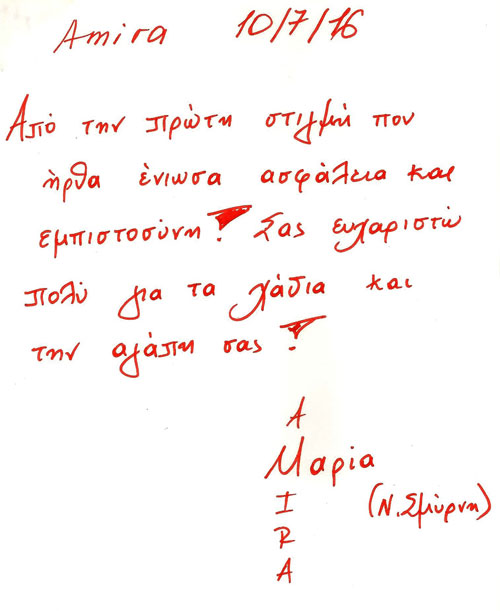 Amira 10/7/16
Από την πρώτη στιγμή που
ήρθα ένιωσα ασφάλεια και
εμπιστοσύνη! Σας ευχαριστώ
πολύ για τα χάδια και
την αγάπη σας!
A
Μαρία
I (Ν. Σμύρνη)
R
A